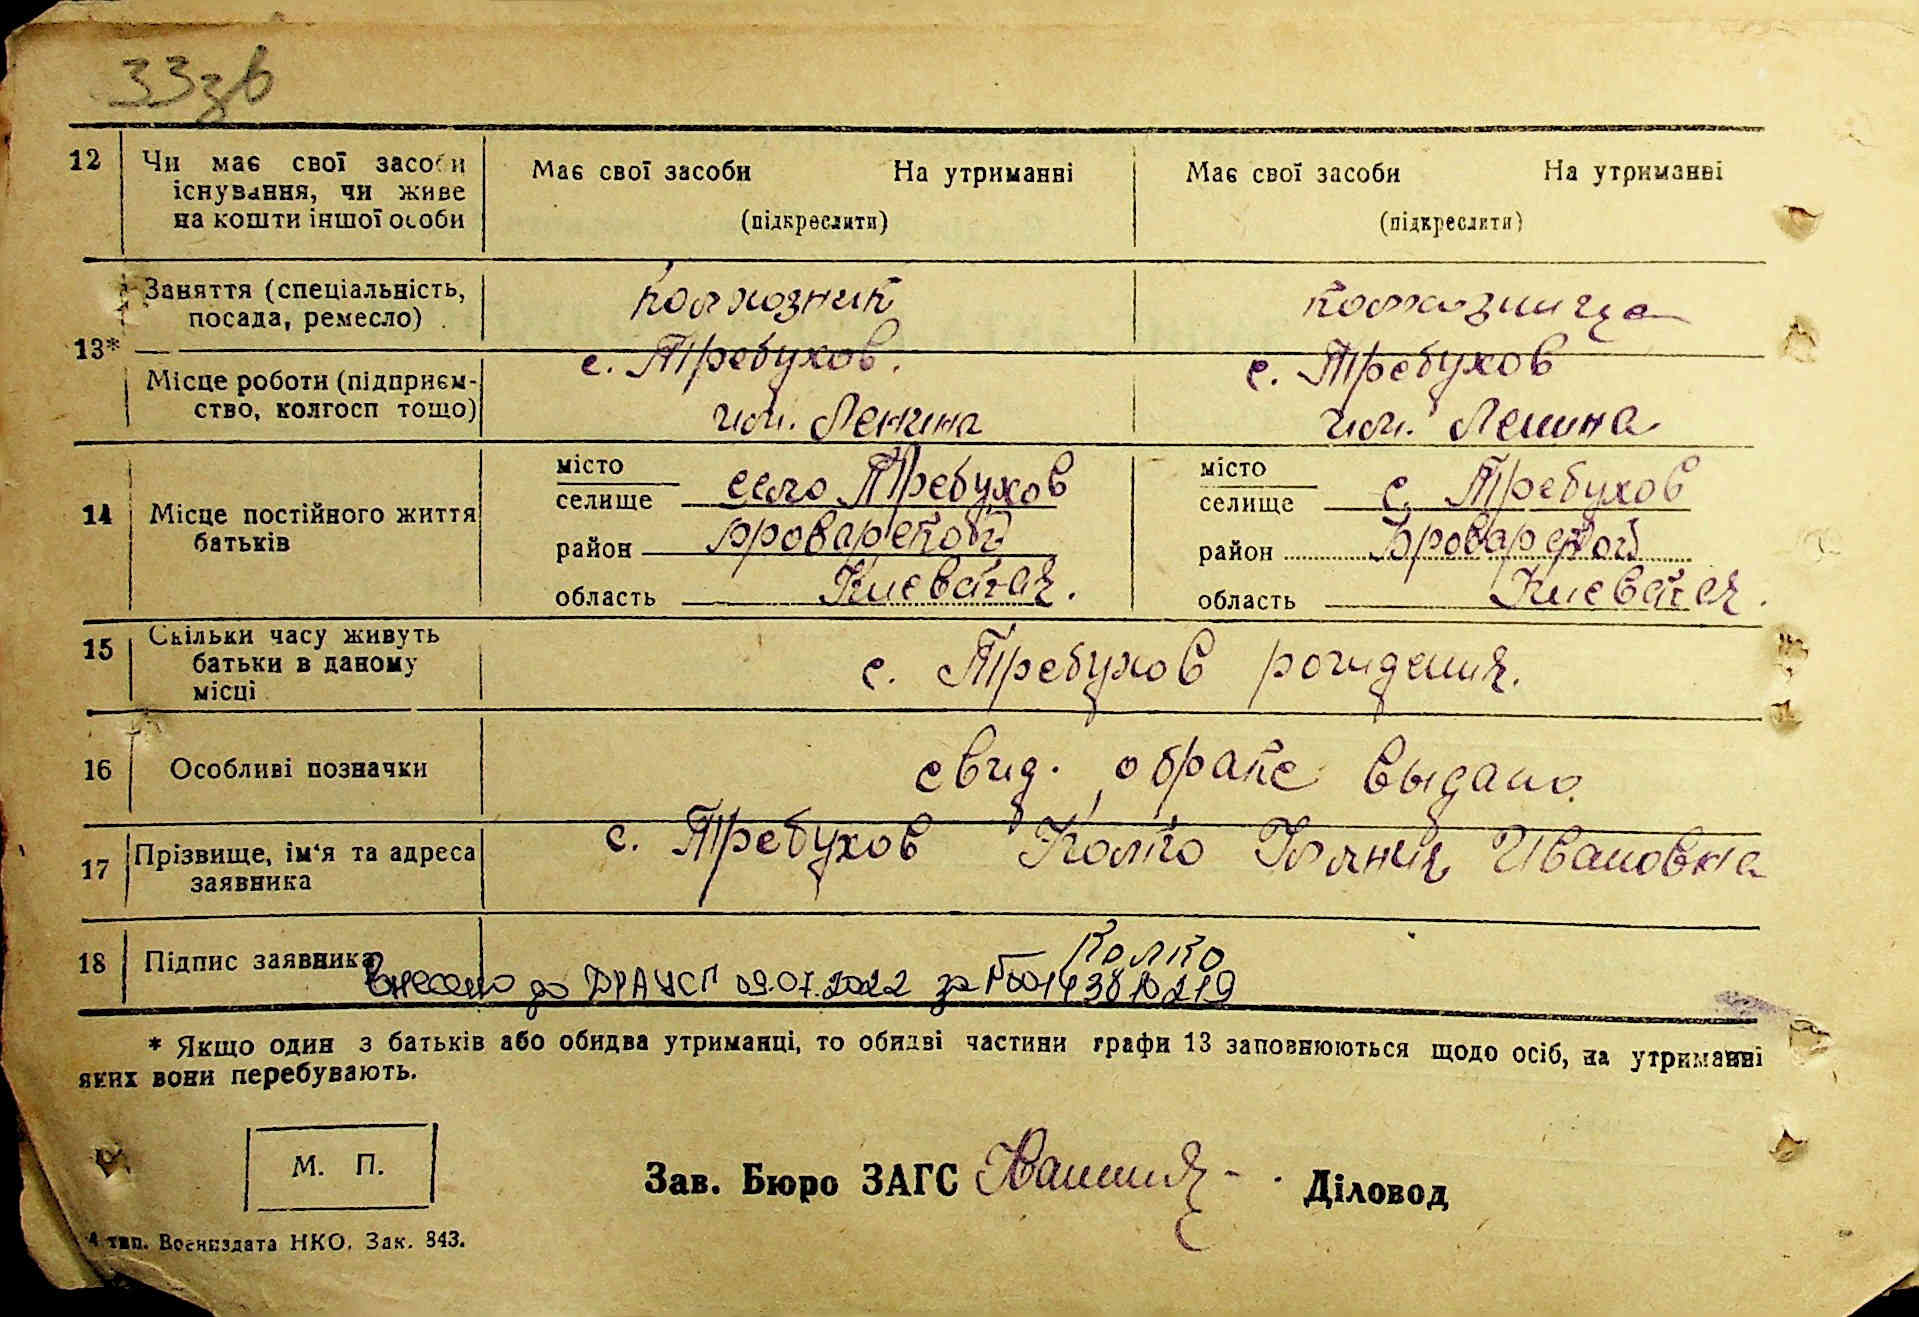 33зв
12 Чи має свої засоби існування, чи живе на кошти іншої особи
Має свої засоби На утриманні
(підкреслити)
Має свої засоби На утриманні
(підкреслити)
13*
Заняття (спеціальність, посада, ремесло)
колхозник
колхозница
Місце роботи (підприємство, колгосп тощо)
с. Требухов.
им. Ленина
с. Требухов
им. Ленина
14 Місце постійного життя батьків
місто
селище село Требухов
район Броварской
область Киевская.
місто
селище с. Требухов
район Броварской
область Киевская.
15 Скільки часу живуть батьки в даному місці
с. Требухов рождения.
16 Особливі позначки
свид. о браке выдано.
17 Прізвище, ім'я та адреса заявника
с. Требухов Колко Ивановна
18 Підпис заявника
Колко
Внесено до ДРАЦСГ 09.07.2022 за №00143810219
* Якщо один з батьків або обидва утриманці, то обидві частини графи 13 заповнюються щодо осіб, на утриманні
яких вони перебувають.
М. П.
Зав. Бюро ЗАГС Діловод
4 тип. Воениздата НКО. Зак. 843.